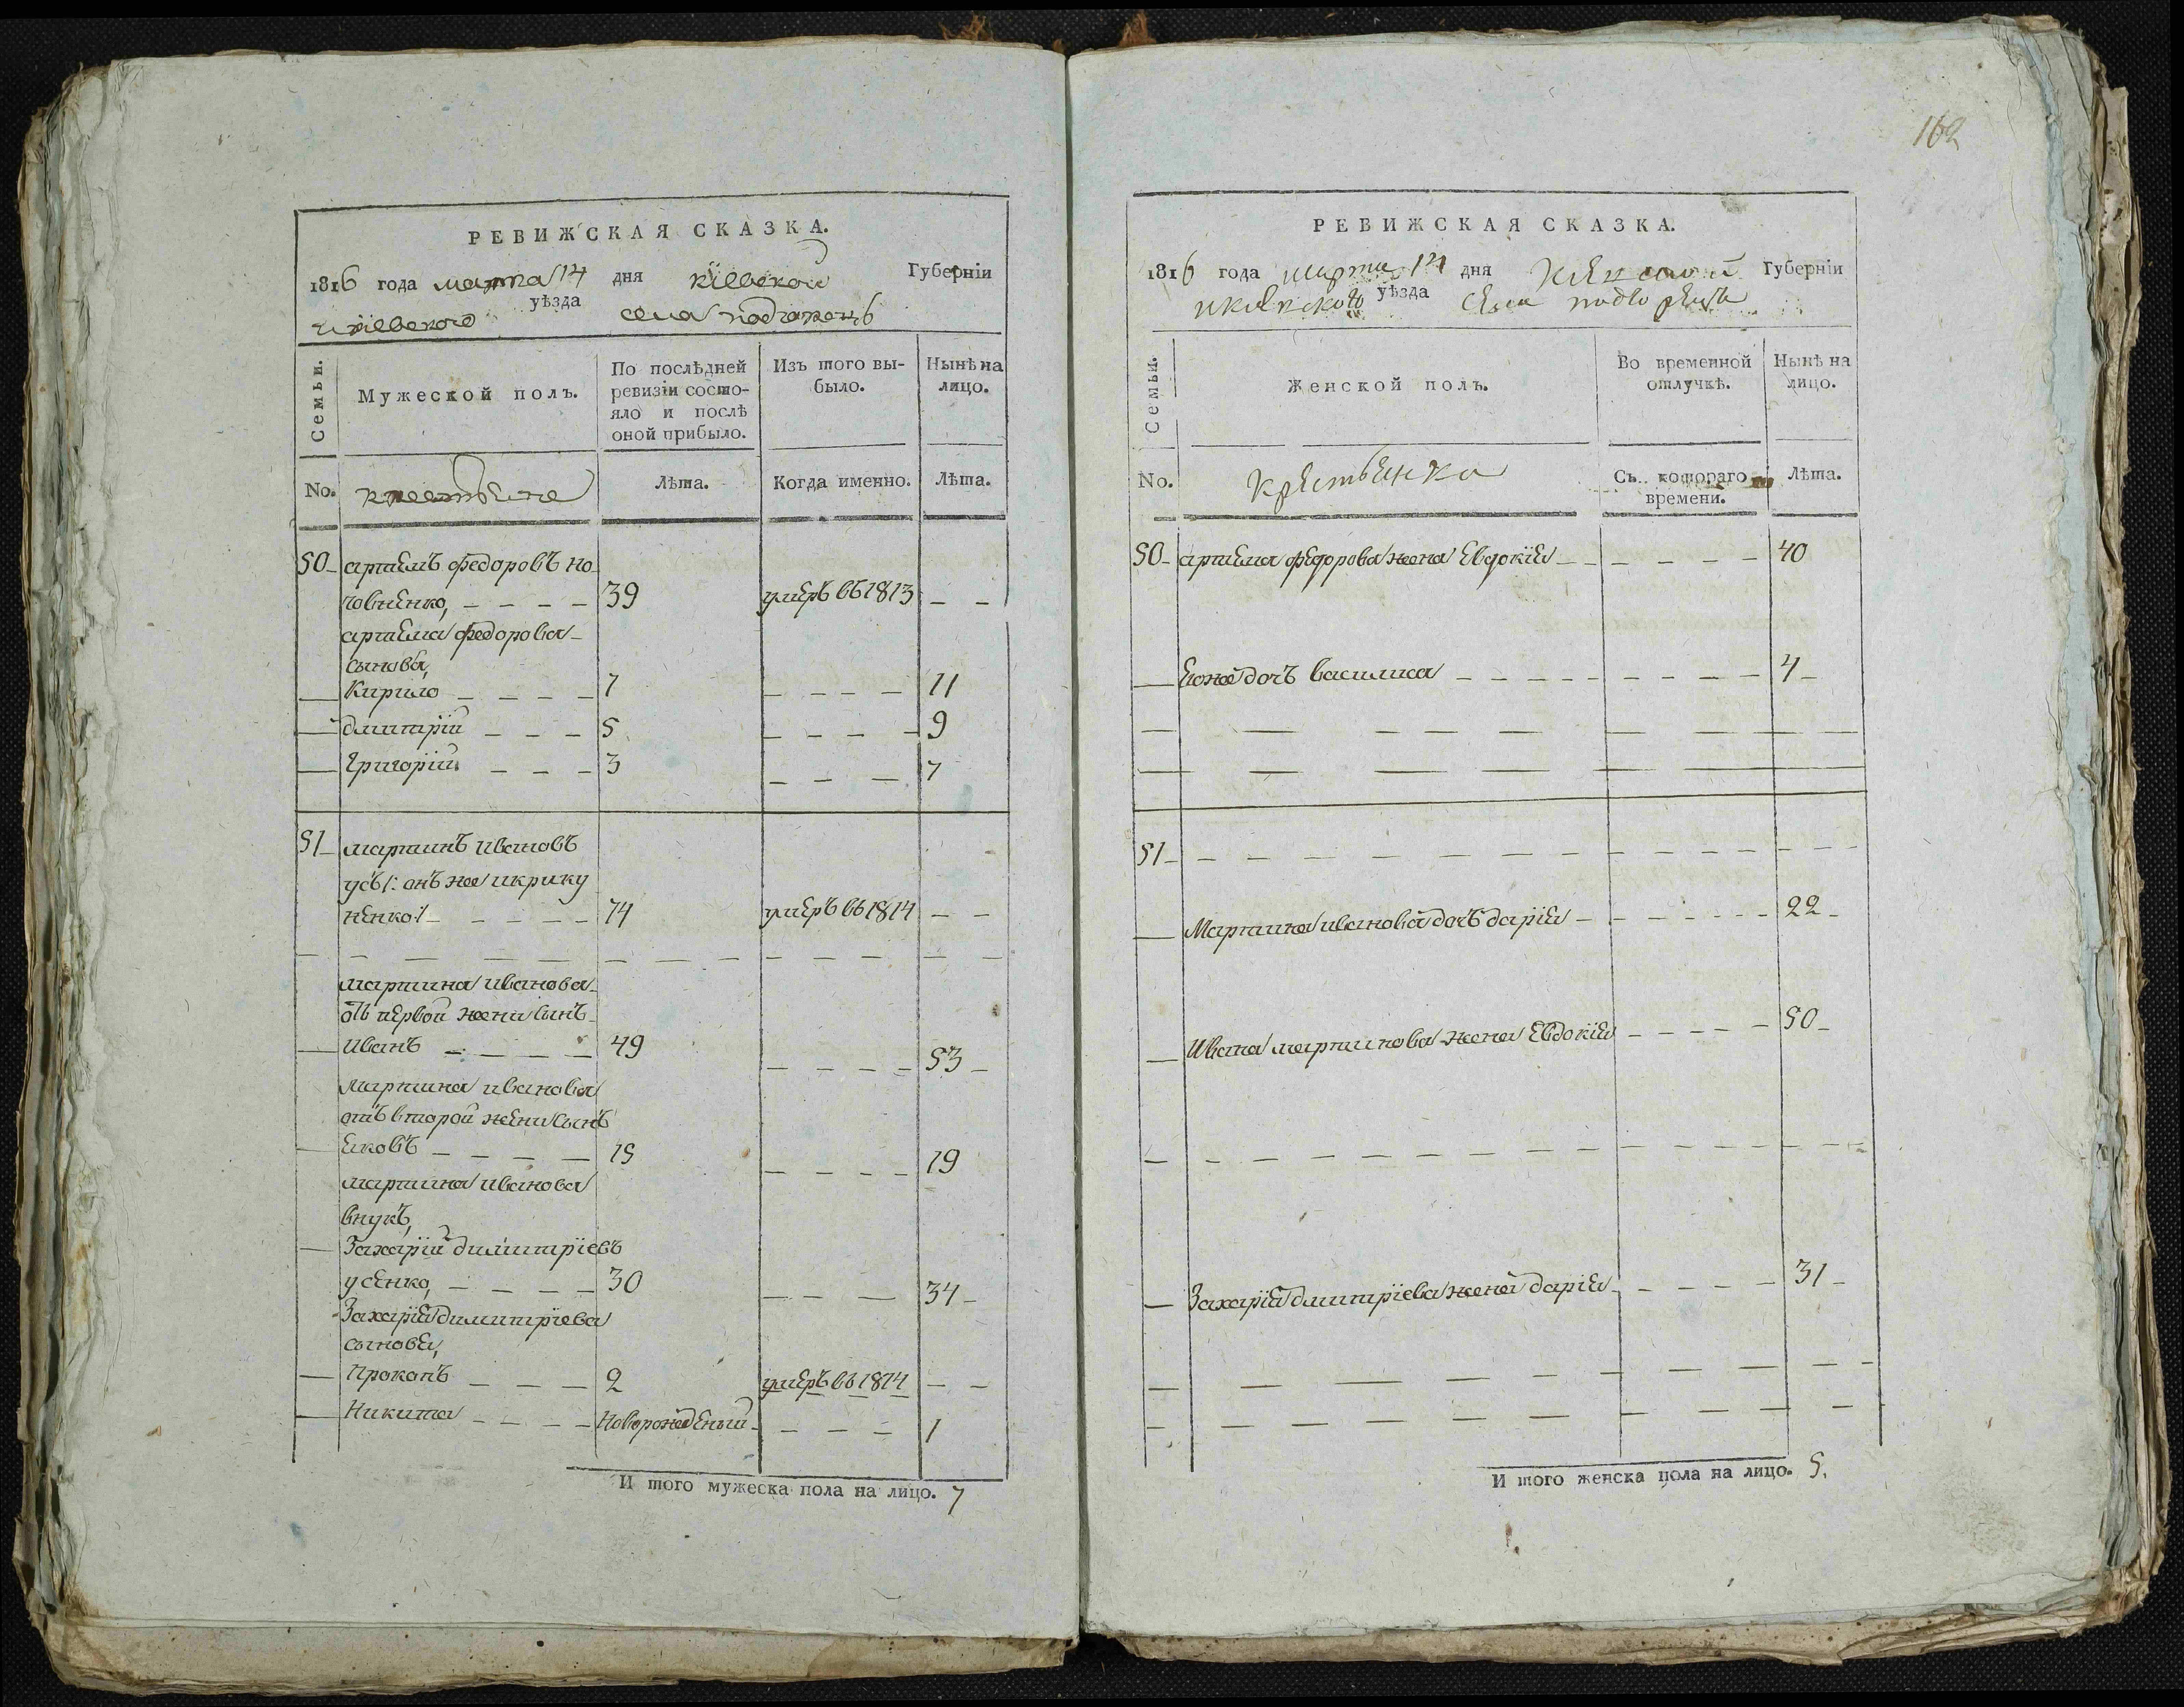 162
РЕВИЖСКАЯ СКАЗКА.
1816 года марта 14 дня кіевской Губерніи
уѣзда села
Семьи.
Мужеской полъ.
По послѣдней ревизіи состояло и послѣ оной прибыло.
Изъ того выбыло.
Нынѣ на лицо.
No.
крестьяне
Лѣта.
Когда именно.
Лѣта.
50 артемъ федоровъ но
39 умеръ въ 1813
артема федорова
сыновя,
Кирило 7 11
дмитрій 5 9
Григорій 3 7
51 мартинъ ивановъ
усъ /: онъ же и крику
ненко :/ 74 умеръ въ 1814
мартина иванова
отъ первой жени сынъ
иванъ 49 53
мартина иванова
отъ второй жени сынъ
яковъ 15 19
мартина иванова
внукъ,
Захарій димитріевъ
усенко, 30 34
Захарія димитріева
сыновя,
Прокопъ 2 умеръ въ 1814
Никита новорожденый 1
И того мужеска пола на лицо. 7
РЕВИЖСКАЯ СКАЗКА.
1816 года марта 14 дня Губерніи
уѣзда села
Семьи.
Женской полъ.
Во временной отлучкѣ.
Нынѣ на лицо.
No.
Съ котораго времени.
Лѣта.
50 артема федорова жена Евдокія 40
Еяже дочъ василиса 4
51
Мартина иванова дочъ дарія 22
Ивана мартинова жена Евдокія 50
Захарія дмитріева жена дарія 31
И того женска пола на лицо. 5.